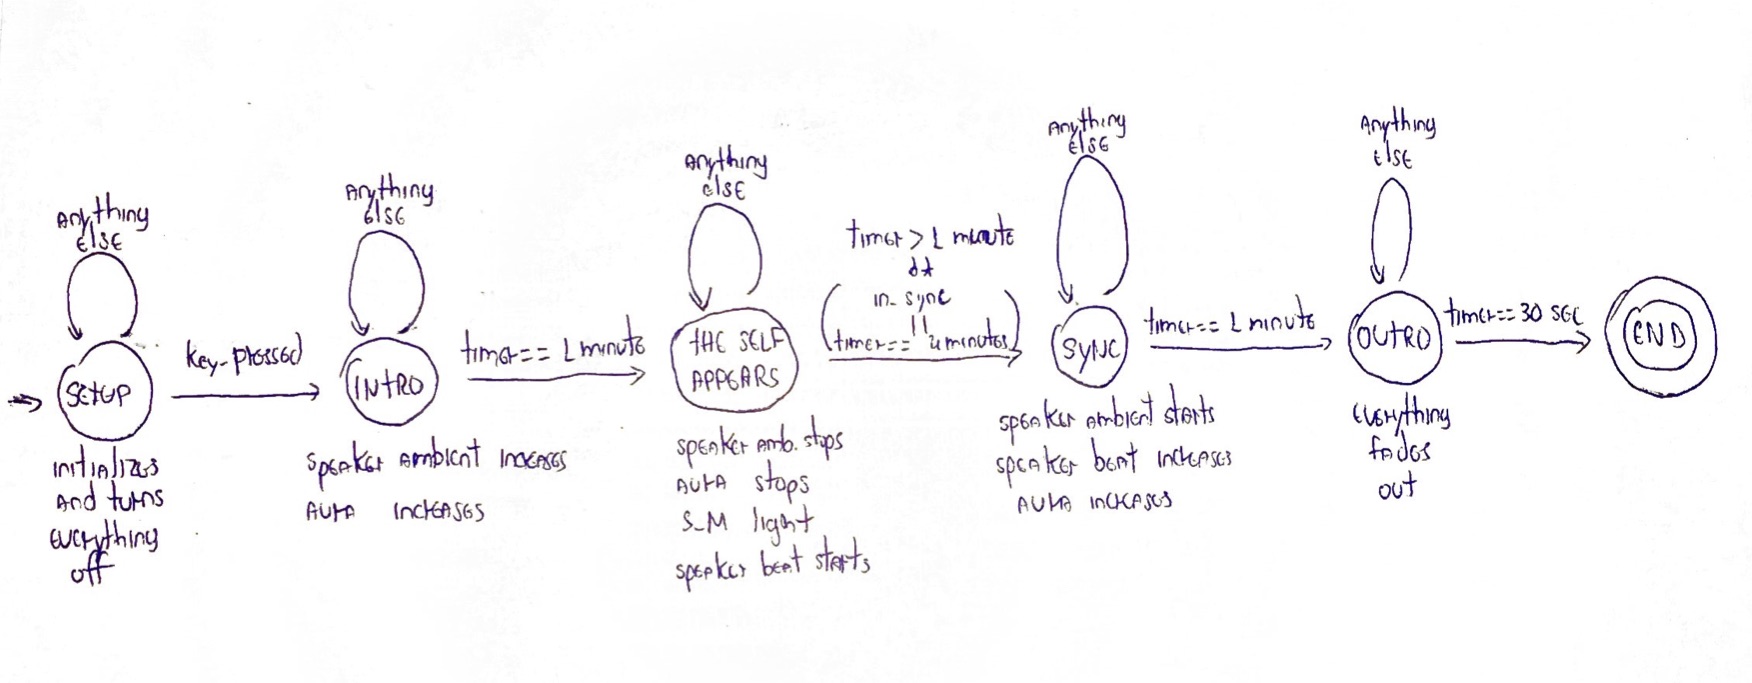 Anything
else
SETUP
initializes
and turns
everything
off
key-pressed
Anything
else
INTRO
speaker ambient increases
aura increases
timer == 1 minute
Anything
else
THE SELF
APPEARS
speaker amb. stops
aura stops
S_M light
speaker beat starts
timer > 1 minute
&&
( in_sync
||
timer == 4 minutes )
Anything
else
SYNC
speaker ambient starts
speaker beat increases
aura increases
timer == 1 minute
Anything
else
OUTRO
everything
fades
out
timer == 30 sec
END